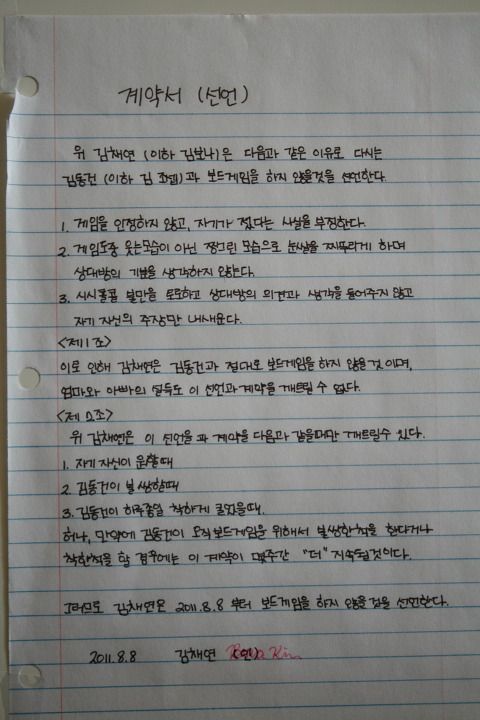 계약서 (선언)
위 김채연 (이하 김보나)은 다음과 같은 이유로 다시는
김동건 (이하 김 요셉)과 보드게임을 하지 않을것을 선언한다.
1. 게임을 인정하지 않고, 자기가 졌다는 사실을 부정한다.
2. 게임도중 웃는모습이 아닌 찡그린 모습으로 눈쌀을 찌푸리게 하며
상대방의 기분을 생각하지 않는다.
3. 시시콜콜 불만을 토로하고 상대방의 의견과 생각을 들어주지 않고
자기 자신의 주장만 내새운다.
<제 1 조>
이로 인해 김채연은 김동건과 절대로 보드게임을 하지 않을것 이며,
엄마와 아빠의 설득도 이 선언과 계약을 깨트릴 수 없다.
<제 2조>
위 김채연은 이 선언을 과 계약을 다음과 같을때만 깨트릴수 있다.
1. 자기 자신이 원할때
2. 김동건이 불쌍할때
3. 김동건이 하루종일 착하게 굴었을때.
허나, 만약에 김동건이 오직 보드게임을 위해서 불쌍한척을 한다거나
착한척을 할 경우에는 이 계약이 몇주간 "더" 지속될것이다.
그러므로 김채연은 2011.8.8 부터 보드게임을 하지 않을 것을 선언한다.
2011.8.8 김채연 (인) Bona Kim